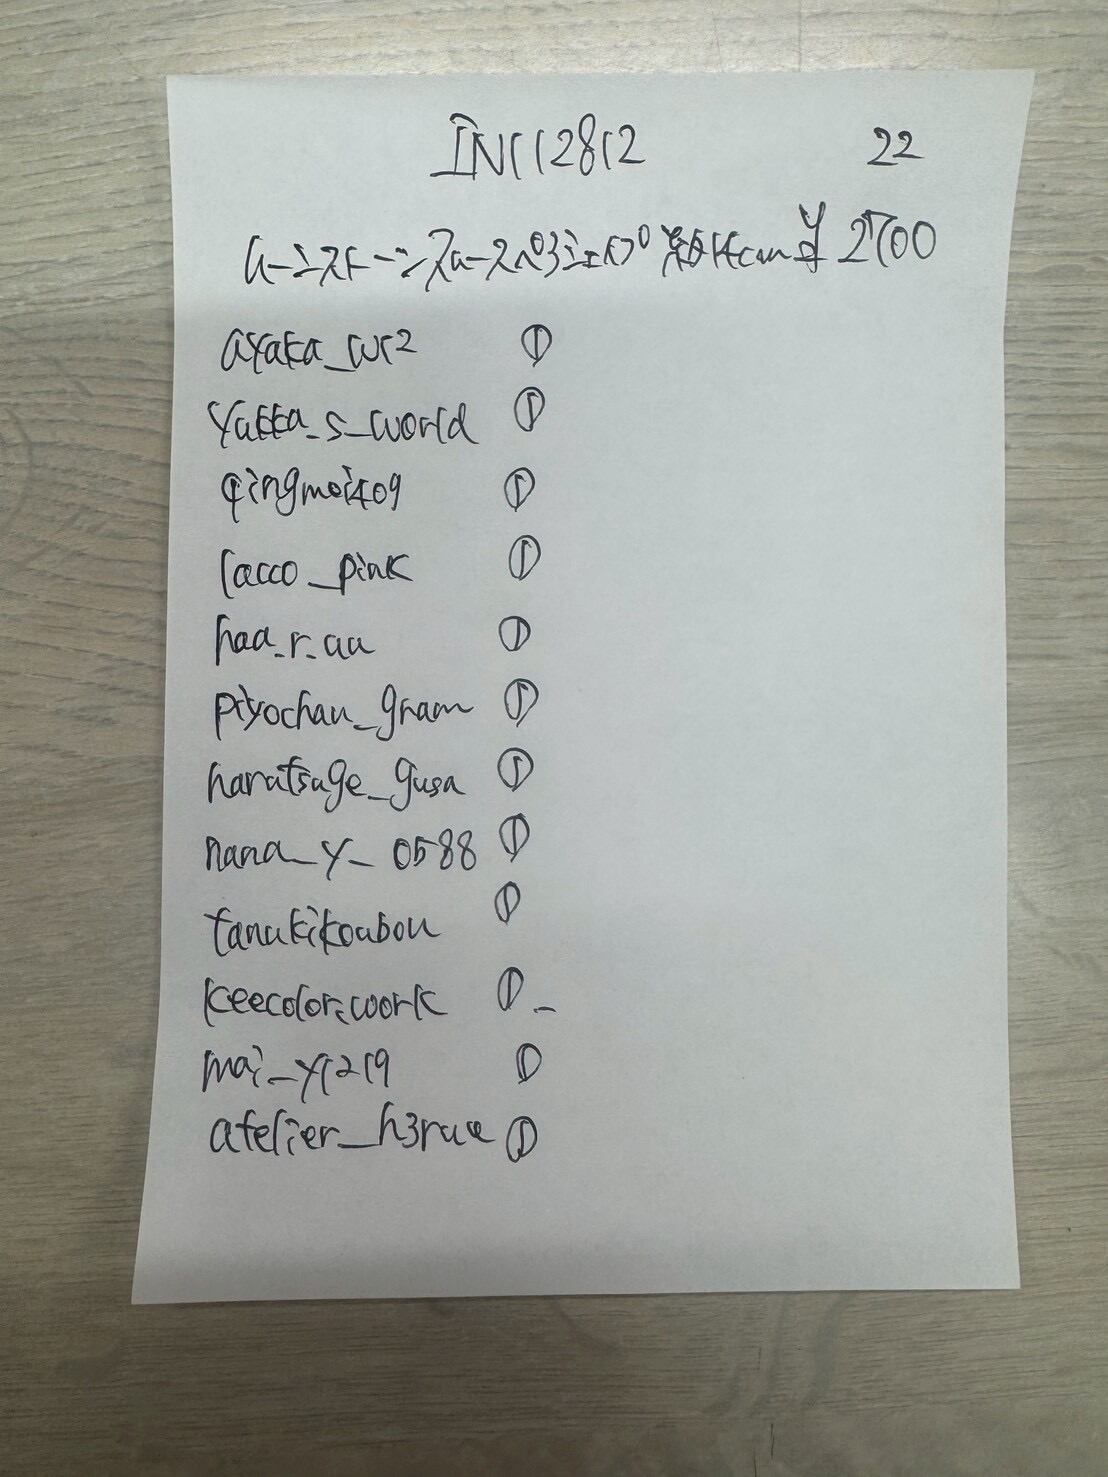 INC12812 22
ムーンストーンスムースペアシェイプ 約14cm ¥2700
ayaka_wr2 ①
yukka_s_world ①
qingmei409 ①
racco_pink ①
haa_r_au ①
piyochan_gram ①
haratsuge_gusa ①
nana_y_0588 ①
tanukikoubou ①
keecolor.work ①
mai_y1219 ①
atelier_h3rae ①